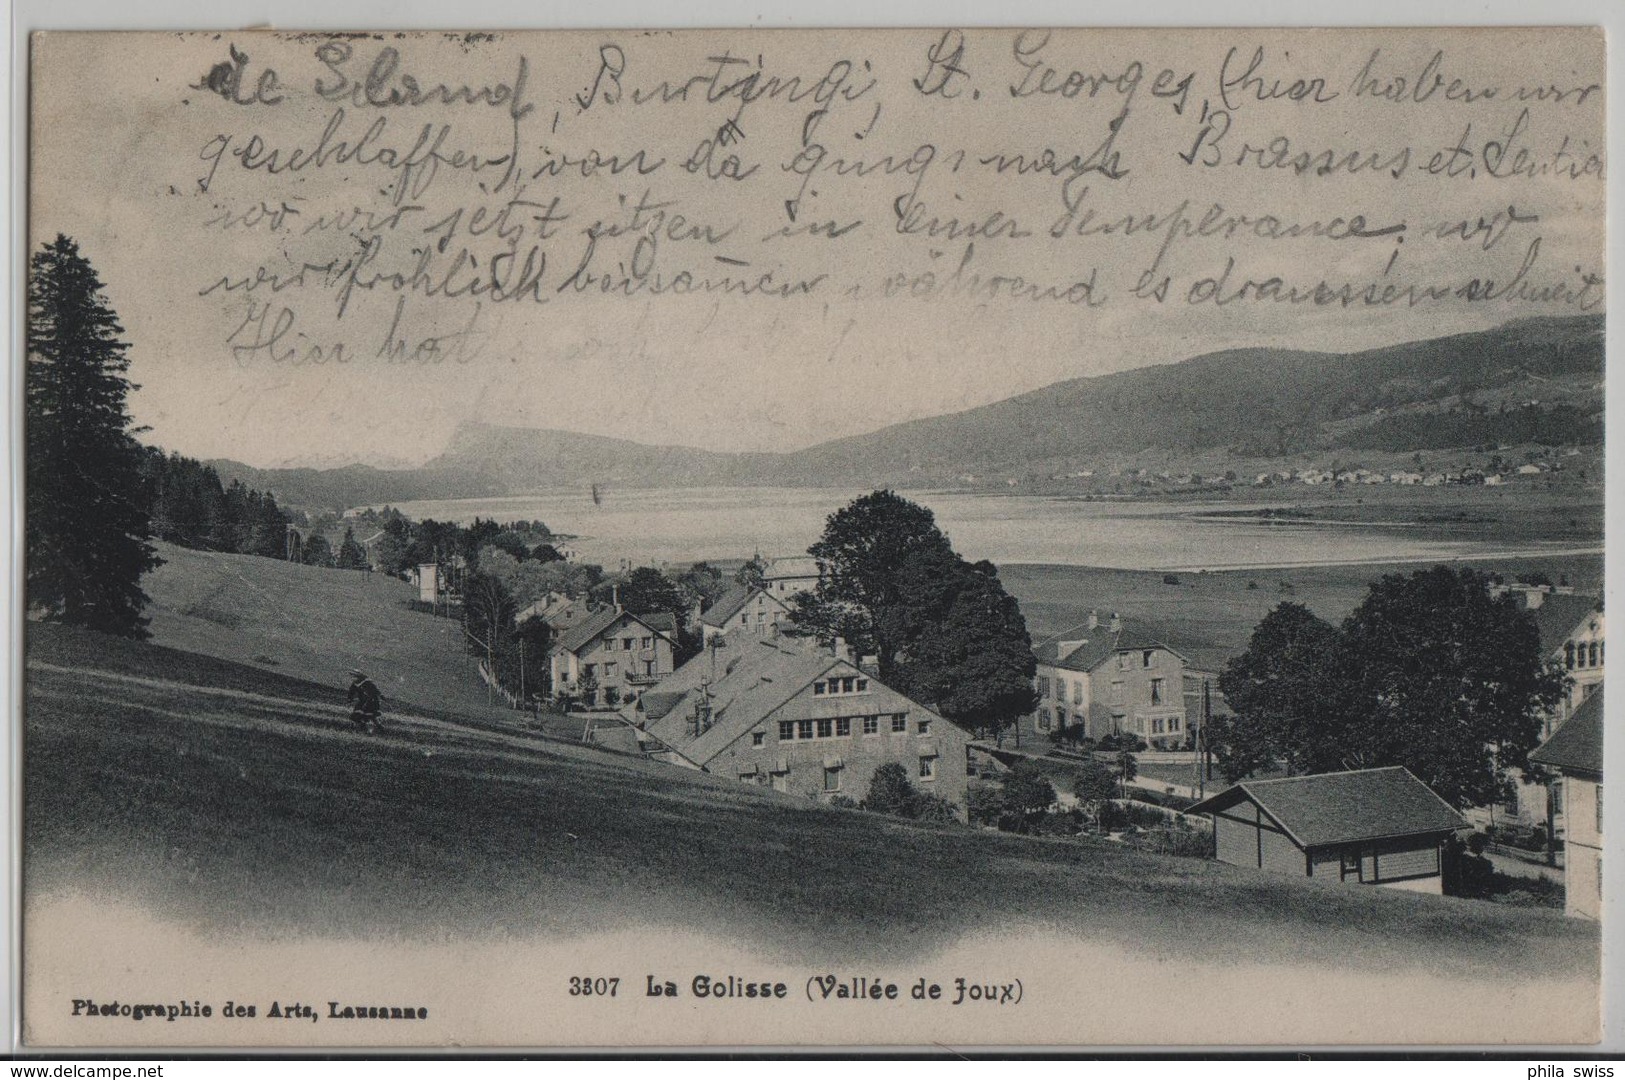 de Gland, Burtingi, St. Georges, (hier haben wir
geschlaffen), von da gings nach Brassus et. Sentier
wo wir jetzt sitzen in einer Temperance, wo
wir fröhlich beisamen, während es draussen schneit
Hier hat
3307 La Golisse (Vallée de Joux)
Photographie des Arts, Lausanne
phila swiss